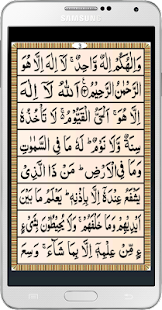 SAMSUNG
3
وَاِلٰهُكُمْ اِلٰهٌ وَّاحِدٌ ۚ لَآ اِلٰهَ اِلَّا هُوَ
الرَّحْمٰنُ الرَّحِيْمُ ۝ اَللّٰهُ لَآ اِلٰهَ
اِلَّا هُوَ ۚ اَلْحَيُّ الْقَيُّوْمُ ۚ لَا تَاْخُذُهٗ
سِنَةٌ وَّلَا نَوْمٌ ؕ لَهٗ مَا فِي السَّمٰوٰتِ
وَمَا فِي الْاَرْضِ ؕ مَنْ ذَا الَّذِيْ
يَشْفَعُ عِنْدَهٗٓ اِلَّا بِاِذْنِهٖ ؕ يَعْلَمُ مَا بَيْنَ
اَيْدِيْهِمْ وَمَا خَلْفَهُمْ ۚ وَلَا يُحِيْطُوْنَ بِشَيْءٍ
مِّنْ عِلْمِهٖٓ اِلَّا بِمَا شَآءَ ۚ وَسِعَ